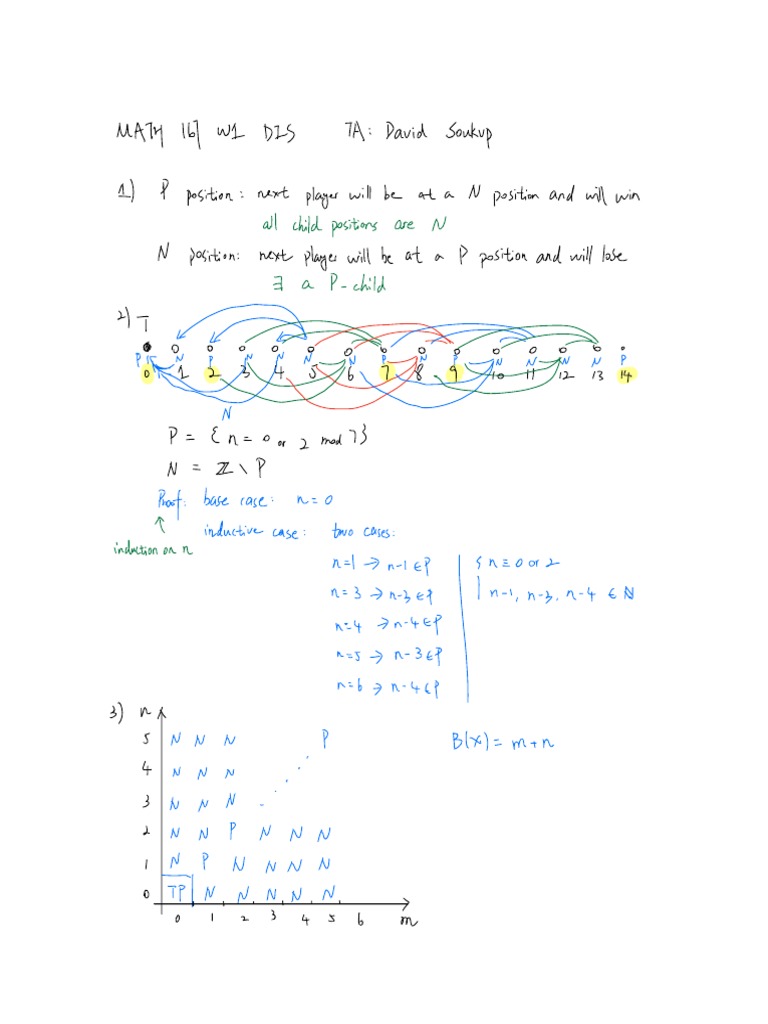 MATH 167 W1 DIS TA: David Soukup
1) P position: next player will be at a N position and will win
all child positions are N
N position: next player will be at a P position and will lose
∃ a P-child
2) T
P N P N N N N P N P N N N N P
0 1 2 3 4 5 6 7 8 9 10 11 12 13 14
N
P = { n = 0 or 2 mod 7}
N = ℤ \ P
Proof: base case: n=0
inductive case: two cases:
induction on n
n=1 → n-1 ∈ P { n ≡ 0 or 2
n=3 → n-3 ∈ P n-1, n-3, n-4 ∈ N
n=4 → n-4 ∈ P
n=5 → n-3 ∈ P
n=6 → n-4 ∈ P
3) n
5 N N N P B(x) = m+n
4 N N N
3 N N N
2 N N P N N N
1 N P N N N N
0 TP N N N N N
0 1 2 3 4 5 6 m